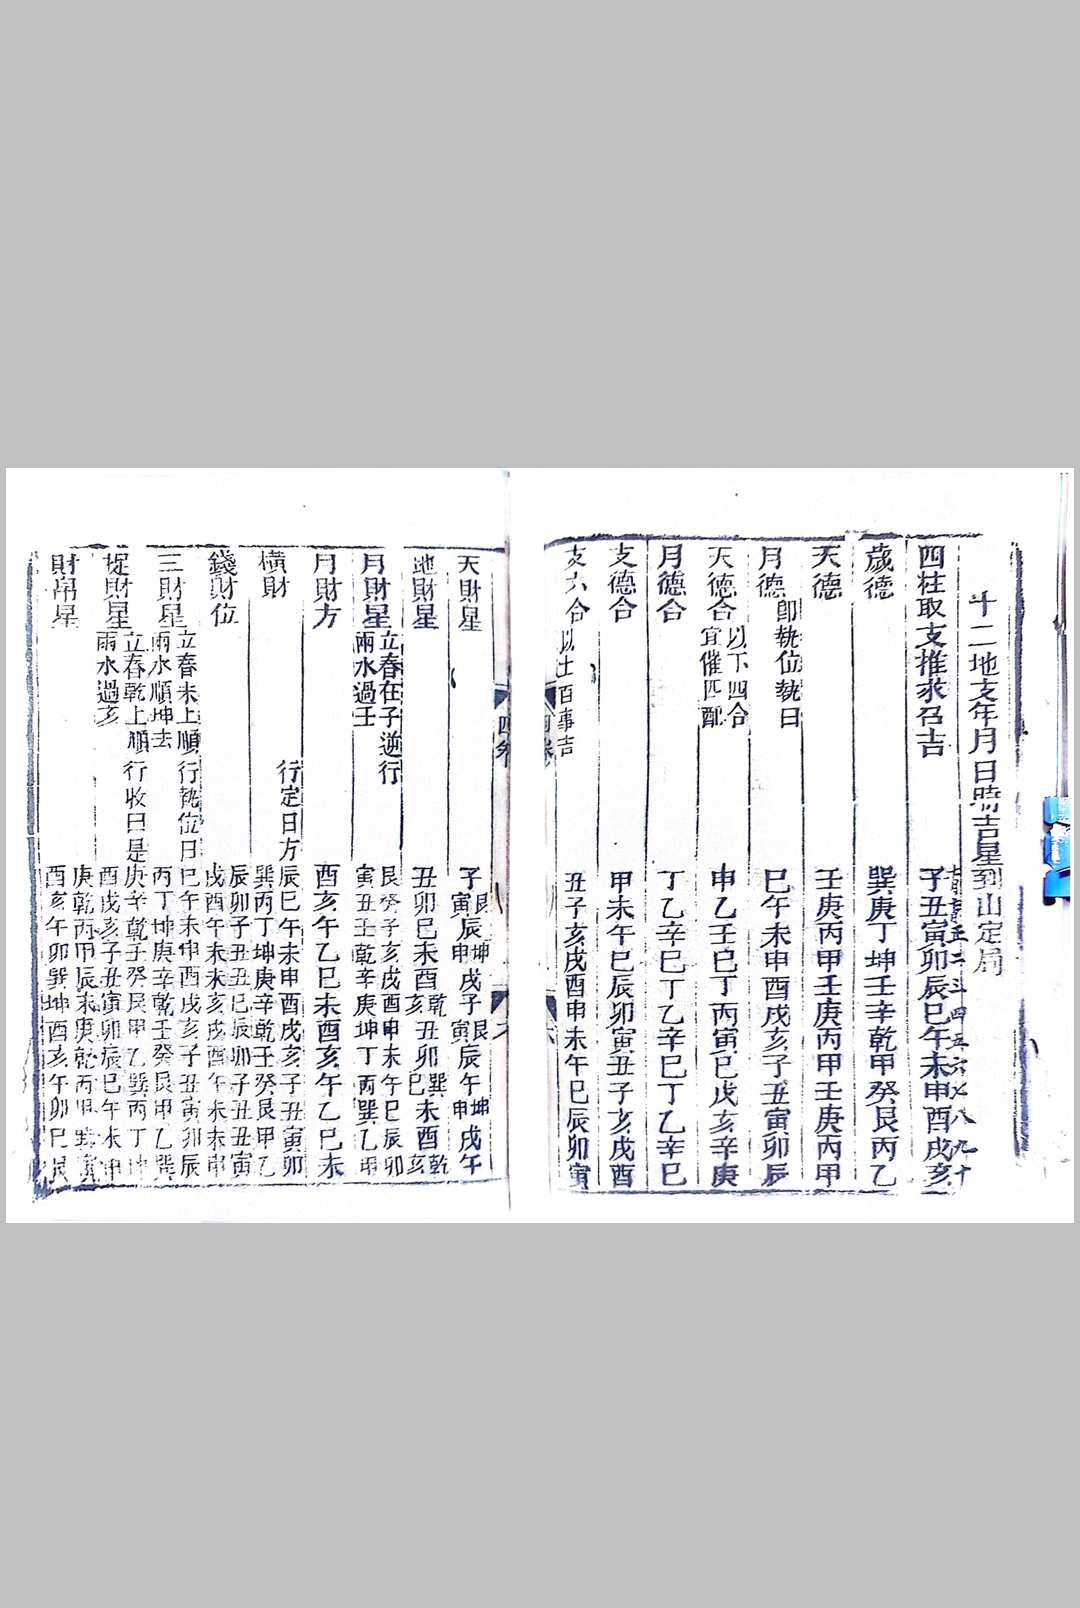 十二地支年月日時吉星到山定局
四柱取支推求召吉 子丑寅卯辰巳午未申酉戌亥
正二三四五六七八九十
歲德 巽庚丁坤壬辛乾甲癸艮丙乙
天德 壬庚丙甲壬庚丙甲壬庚丙甲
月德 即執位執日 巳午未申酉戌亥子丑寅卯辰
天德合 以下四合宜催匹配 申乙壬巳丁丙寅巳戊亥辛庚
月德合 丁乙辛巳丁乙辛巳丁乙辛巳
支德合 甲未午巳辰卯寅丑子亥戌酉
支六合 以上百事吉 丑子亥戌酉申未午巳辰卯寅
四卷
六
天財星 子寅艮辰申坤戌子寅艮辰午申坤戌午
地財星 丑卯巳未酉亥乾丑卯巳巽未酉亥乾
月財星 立春在子逆行 艮癸子亥戌酉申未午巳辰卯
雨水過壬 寅丑壬乾辛庚坤丁丙巽乙甲
月財方 酉亥午乙巳未酉亥午乙巳未
橫財 行定日方 辰巳午未申酉戌亥子丑寅卯
巽丙丁坤庚辛乾壬癸艮甲乙
錢財位 辰卯子丑丑巳辰卯子丑丑寅
戌酉午未未亥戌酉午未未申
三財星 立春未上順行執位日 巳午未申酉戌亥子丑寅卯辰
雨水順坤去 丙丁坤庚辛乾壬癸艮甲乙巽
捉財星 立春乾上順行收日是 庚辛乾壬癸艮甲乙巽丙丁坤
雨水過亥 酉戌亥子丑寅卯辰巳午未申
財帛星 庚乾丙甲辰未庚乾丙甲
酉亥午卯巽坤酉亥午卯巳艮